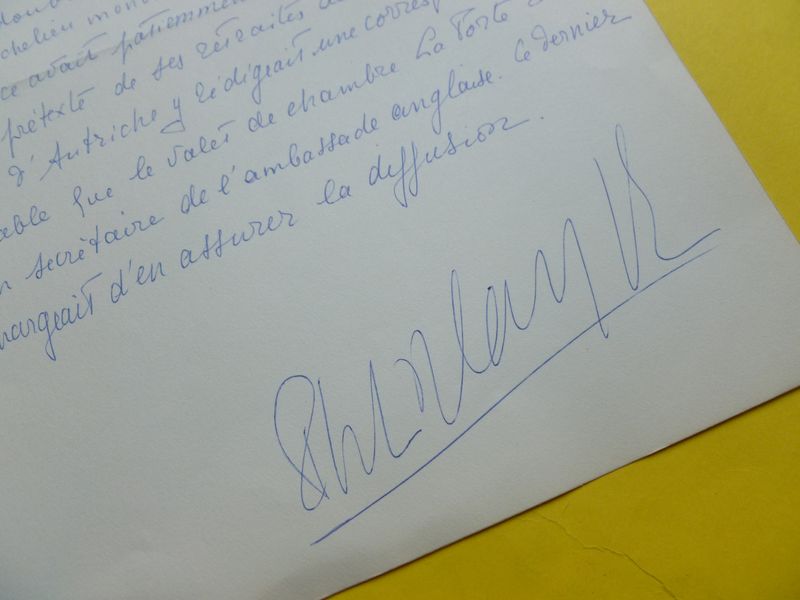 ce avait patiemment
prétexte de ses retraites
d'Autriche y rédigeait une corresp
able que le valet de chambre La Porte
n secrétaire de l'ambassade anglaise. Ce dernier
hargeait d'en assurer la diffusion.